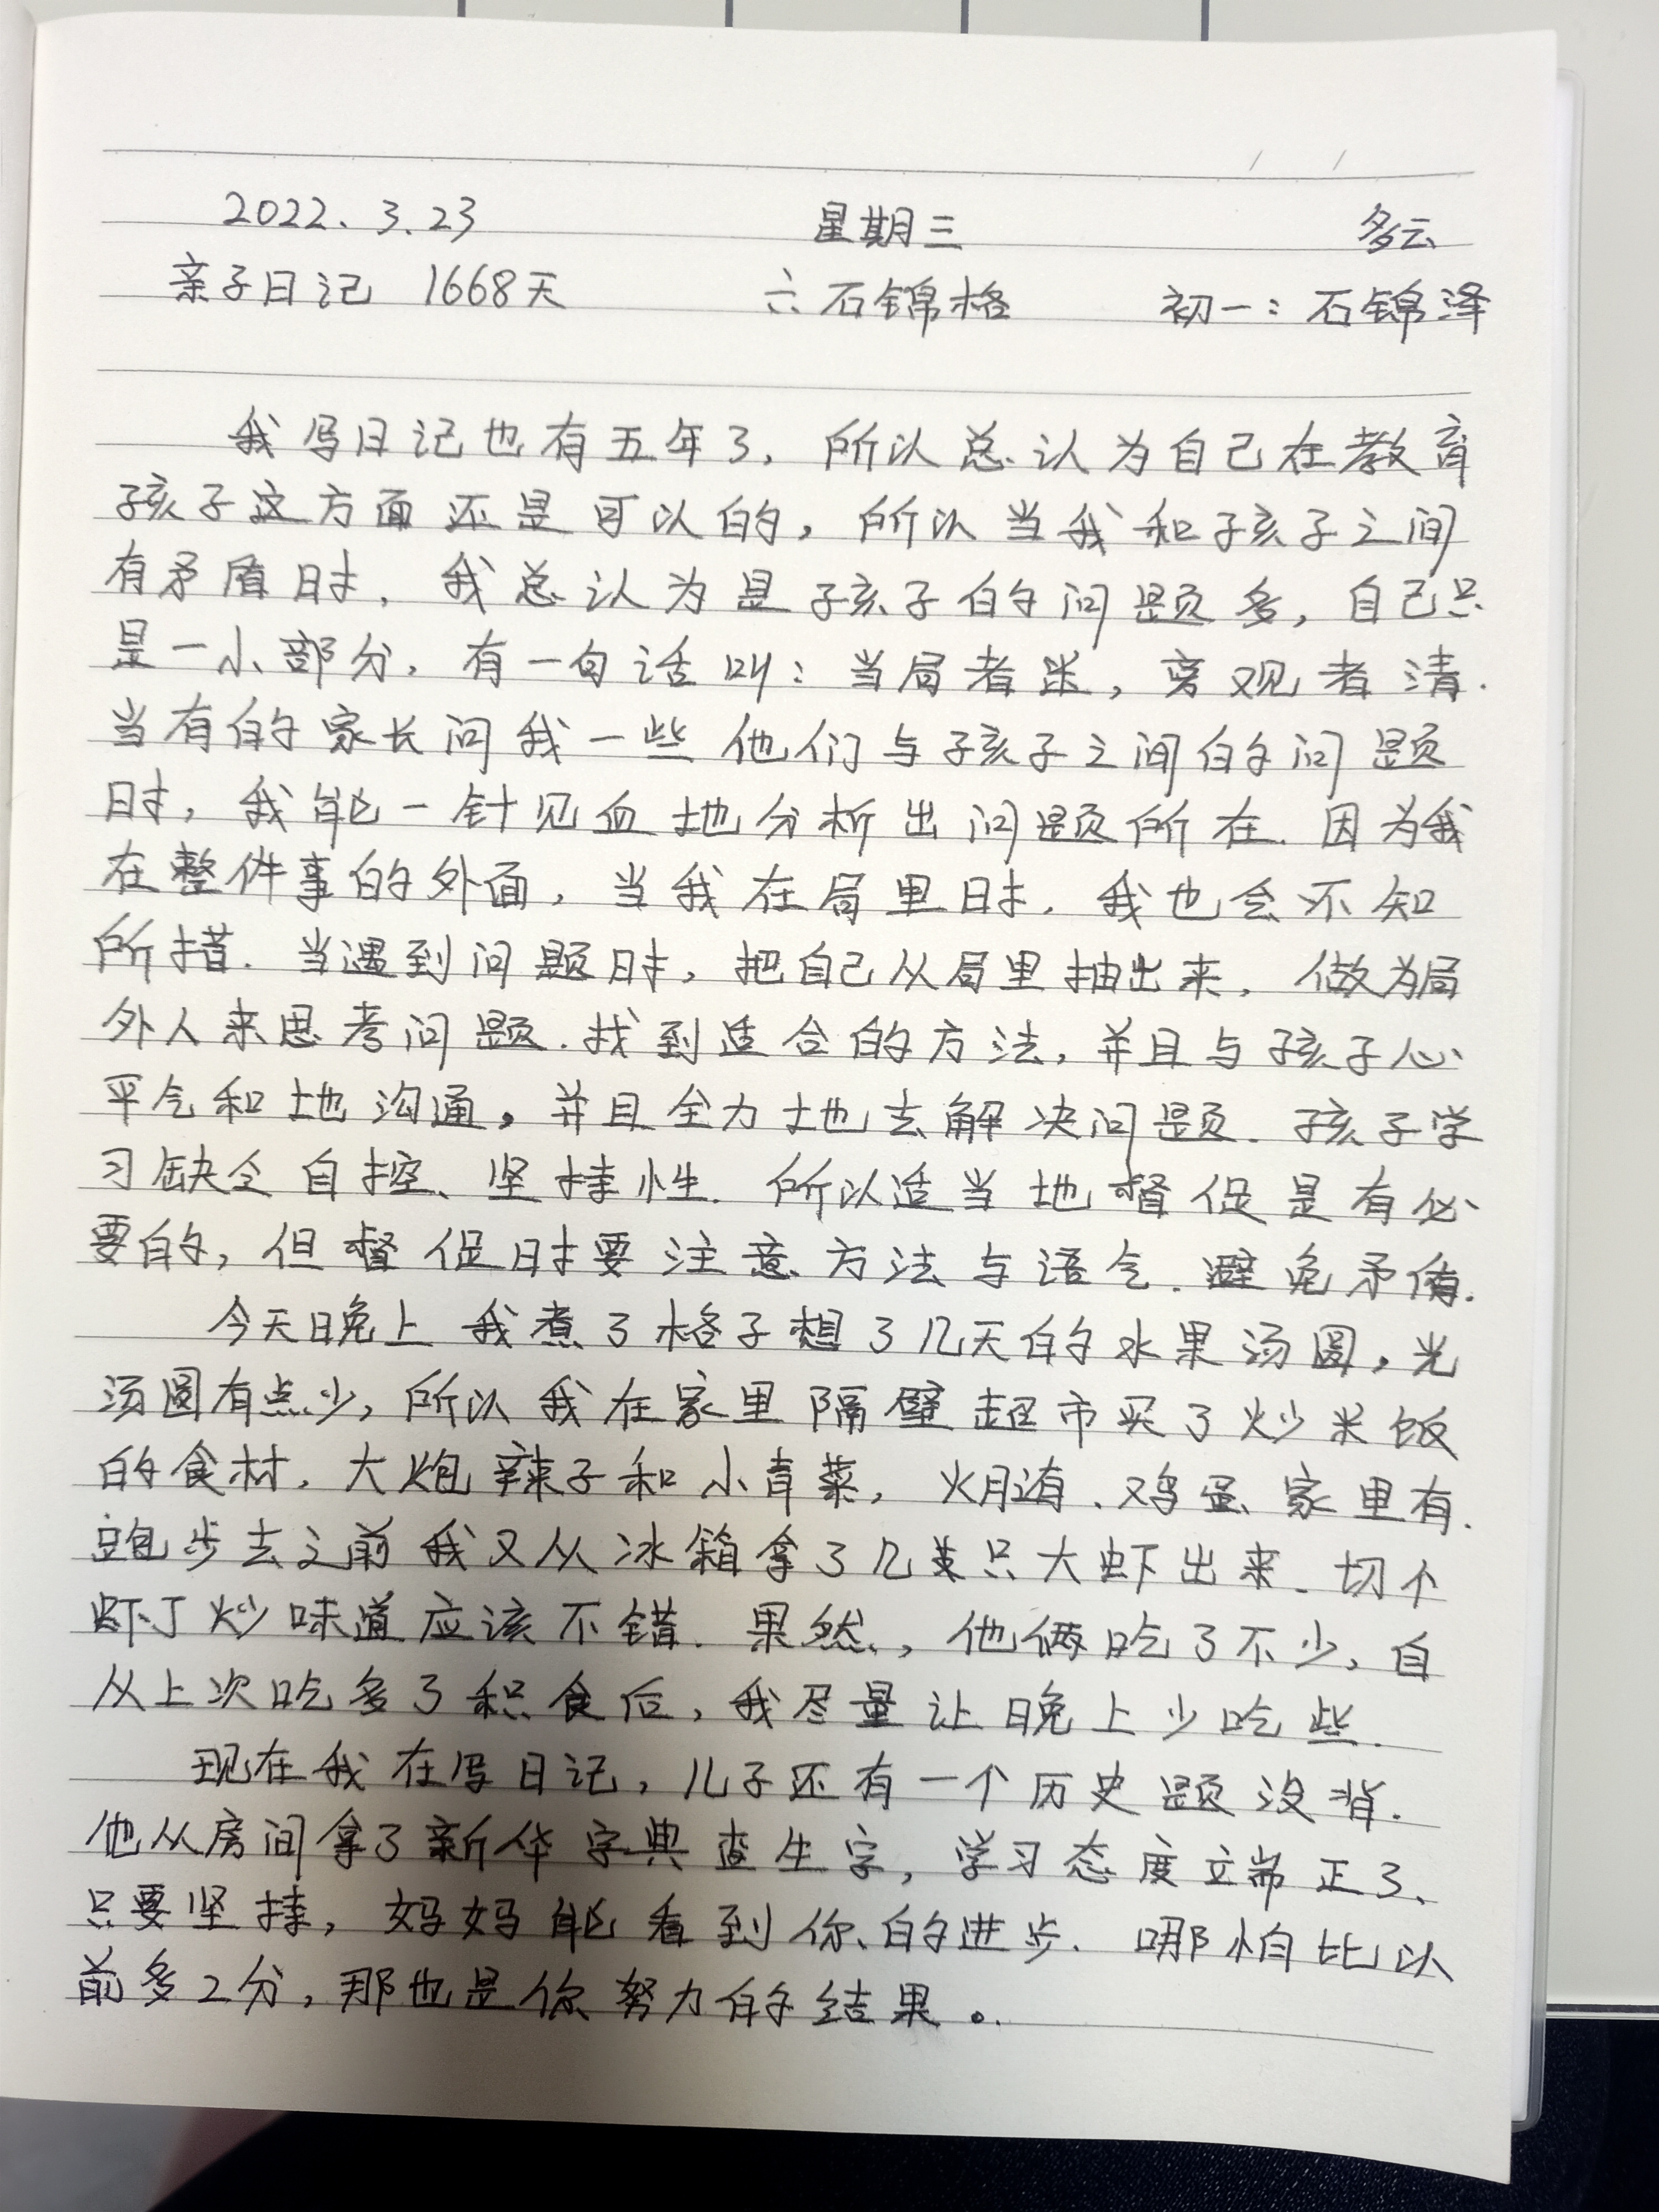 2022.3.23 星期三 多云
亲子日记 1668天 六石锦格 初一:石锦泽
我写日记也有五年了,所以总认为自己在教育
孩子这方面还是可以的,所以当我和孩子之间
有矛盾时,我总认为是孩子的问题多,自己只
是一小部分,有一句话叫:当局者迷,旁观者清.
当有的家长问我一些他们与孩子之间的问题
时,我能一针见血地分析出问题所在.因为我
在整件事的外面,当我在局里时,我也会不知
所措.当遇到问题时,把自己从局里抽出来,做为局
外人来思考问题.找到适合的方法,并且与孩子心
平气和地沟通,并且全力地去解决问题.孩子学
习缺乏自控、坚持性.所以适当地督促是有必
要的,但督促时要注意方法与语气.避免矛盾.
今天晚上我煮了格子想了几天的水果汤圆,光
汤圆有点少,所以我在家里隔壁超市买了炒米饭
的食材,大炮辣子和小青菜,火腿、鸡蛋家里有.
跑步去之前我又从冰箱拿了几只大虾出来.切个
虾丁炒味道应该不错.果然,他俩吃了不少,自
从上次吃多了积食后,我尽量让晚上少吃些.
现在我在写日记,儿子还有一个历史题没背.
他从房间拿了新华字典查生字,学习态度端正了、
只要坚持,妈妈能看到你的进步.哪怕比以
前多2分,那也是你努力的结果。